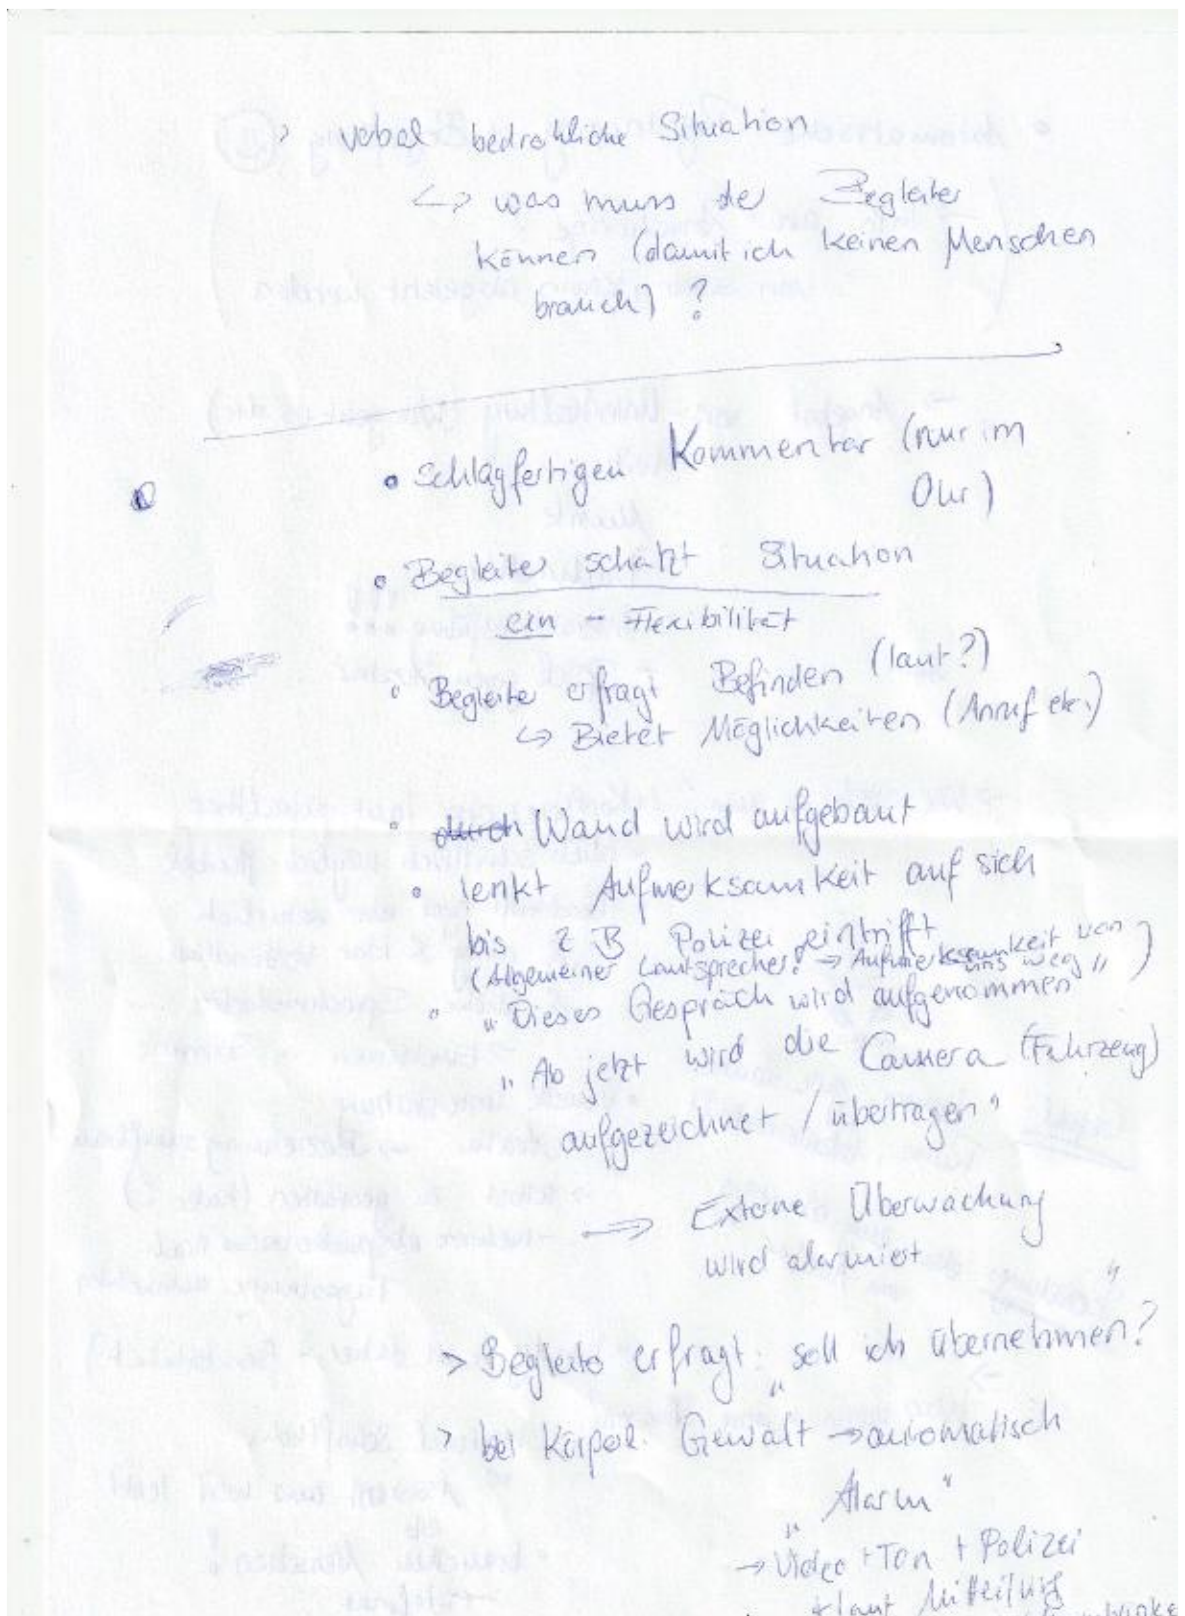 > vebal bedrohliche Situation
↳ was muss der Begleiter
können (damit ich keinen Menschen
brauch) ?
• Schlagfertigen Kommentar (nur im
Ohr)
• Begleiter schätzt Situation
ein - Flexibilität
• Begleiter erfragt Befinden (laut?)
↳ Bietet Möglichkeiten (Anruf etc.)
• durch Wand wird aufgebaut
• lenkt Aufmerksamkeit auf sich
bis z B Polizei eintrifft
(Allgemeiner Lautsprecher? → Aufmerksamkeit von
uns weg")
• "Dieses Gespräch wird aufgenommen
"Ab jetzt wird die Camera (Fahrzeug)
aufgezeichnet / übertragen"
⇒ Externe Überwachung
wird alarmiert "
> Begleiter erfragt: "soll ich übernehmen?
> bei Körperl. Gewalt → automatisch
"Alarm"
→ Video + Ton + Polizei
+ laut Mitteilung